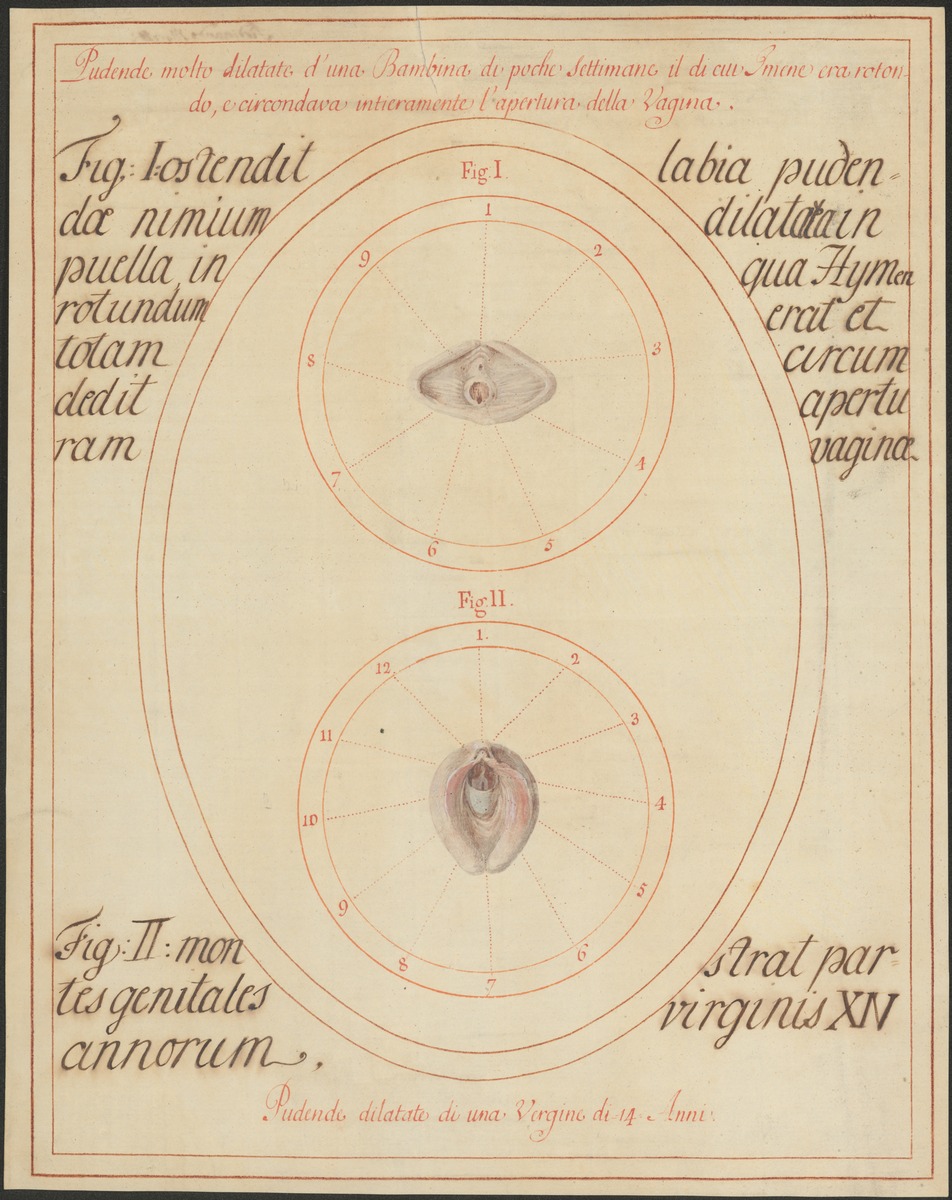 Pudende molto dilatate d'una Bambina di poche Settimane il di cui Imene era roton-
do, e circondava intieramente l'apertura della Vagina.
Fig: I. ostendit labia puden=
dæ nimium dilatata in
puella, in qua Hymen
rotundum erat et
totam circum
dedit apertu
ram vaginæ
Fig. I.
1
2
3
4
5
6
7
8
9
Fig. II.
1.
2
3
4
5
6
7
8
9
10
11
12
Fig: II: mon strat par=
tes genitales virginis XIV
annorum.
Pudende dilatate di una Vergine di 14 Anni.